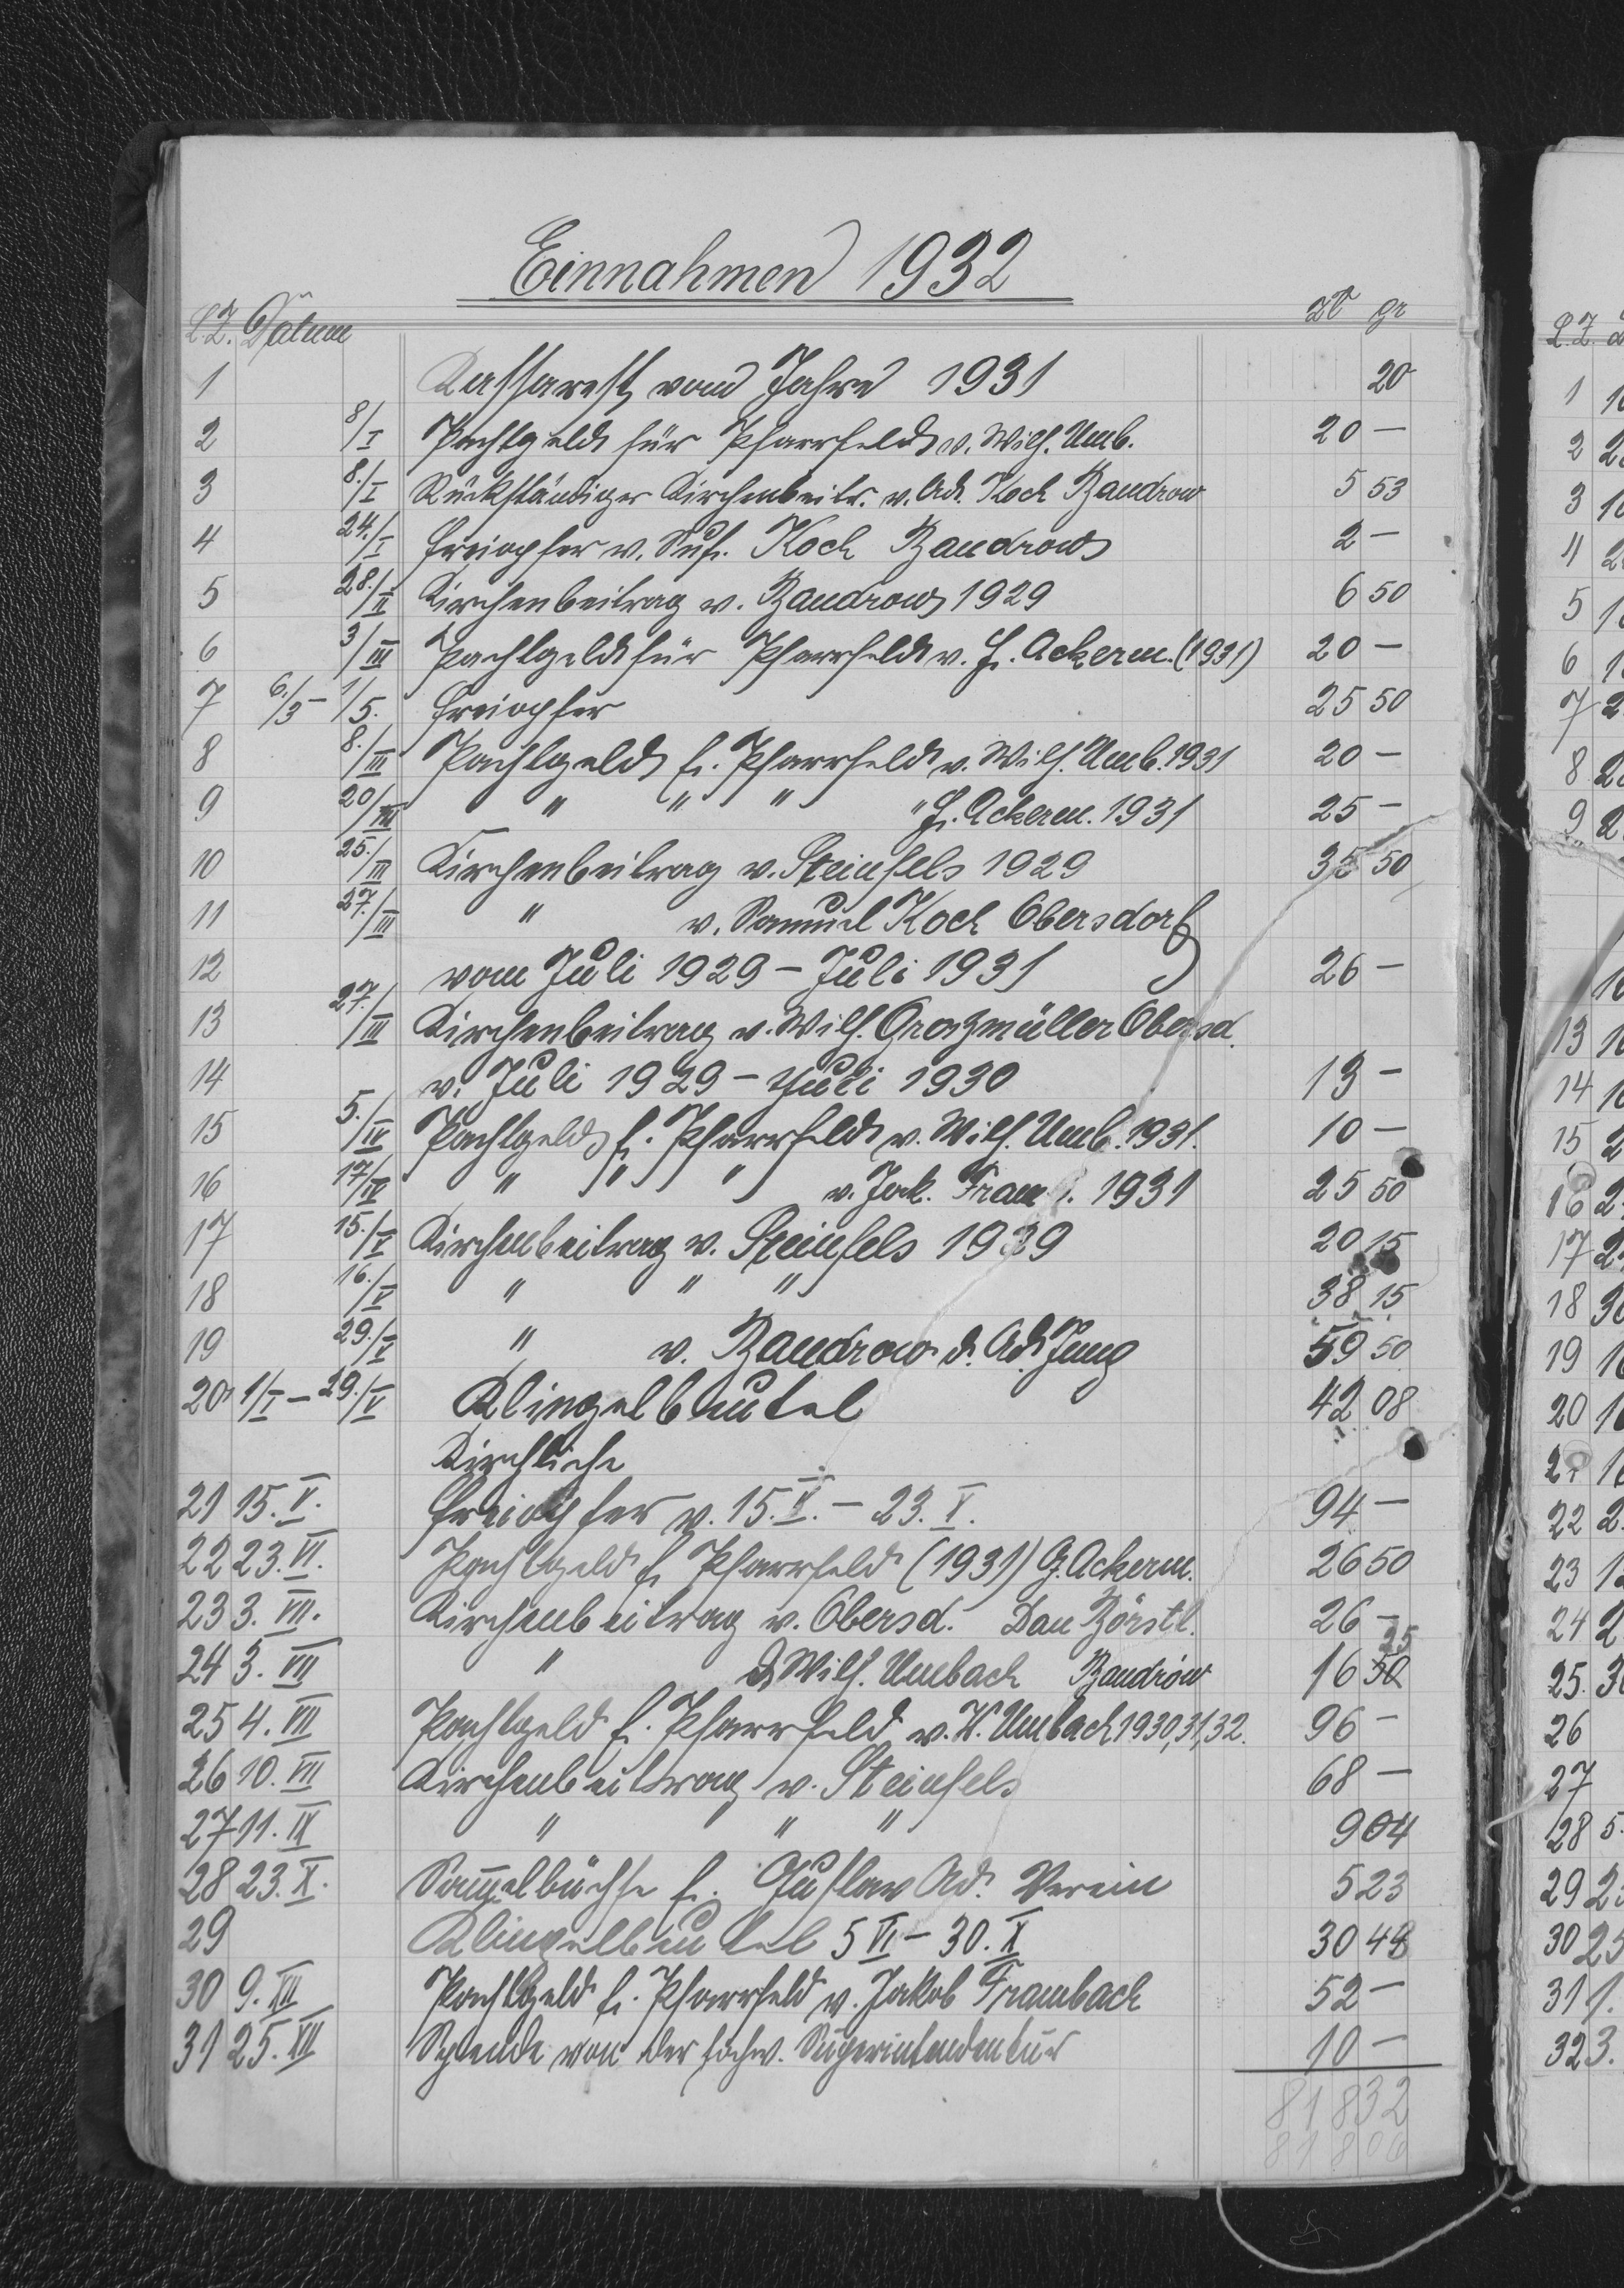 Einnahmen 1932
L.Z. Datum zł gr
1 Kassarest vom Jahre 1931 20
2 8/I Pachtgeld für Pfarrfeld v. Wilh. Umb. 20 —
3 8./I Rückständiger Kirchenbeitr. v. Ad. Koch Bandrow 5 53
4 24./I Freiopfer v. Koch Bandrow 2 —
5 28./II Kirchenbeitrag v. Bandrow 1929 6 50
6 3/III Pachtgeld für Pfarrfeld v. F. Ackerm. (1931) 20 —
7 6./3 — 1/5. Freiopfer 25 50
8 8./III Pachtgeld f. Pfarrfeld v. Wilh. Umb. 1931 20 —
9 20/III " " " " F. Ackerm. 1931 25 —
10 25./III Kirchenbeitrag v. Steinfels 1929 35 50
11 27./III " v. Samuel Koch Obersdorf
12 vom Juli 1929 — Juli 1931 26 —
13 27./III Kirchenbeitrag v. Wilh. Großmüller Obersd.
14 v. Juli 1929 — Juli 1930 13 —
15 5./IV Pachtgeld f. Pfarrfeld v. Wilh. Umb. 1931. 10 —
16 17/IV " " " v. Jak. Fram. 1931 25 50
17 15./V Kirchenbeitrag v. Steinfels 1929 20 15
18 16./V " " " 38 15
19 29./V " v. Bandrow d. Ad. Jung 59 50
20 1/I — 29./V Klingelbeutel 42 08
Kirchliche
21 15. V. Freiopfer v. 15. V. — 23. V. 94 —
22 23. VI. Pachtgeld f. Pfarrfeld (1931) G. Ackerm. 26 50
23 3. VII. Kirchenbeitrag v. Obersd. Dan Börstl. 26 —
24 3. VII " d Wilh. Umbach Bandrów 16 50 25
25 4. VII Pachtgeld f. Pfarrfeld v. K. Umbach 1930, 31, 32. 96 —
26 10. VII Kirchenbeitrag v. Steinfels 68 —
27 11. IX " " " " 9 04
28 23. X. Sam̄elbüchse f. Gustav Ad. Verein 5 23
29 Klingelbeutel 5 VI — 30. X 30 48
30 9. XII Pachtgeld f. Pfarrfeld v. Jakob Frambach 52 —
31 25. XII Spende von der hochw. Superintendentur 10 —
818 32
818 06